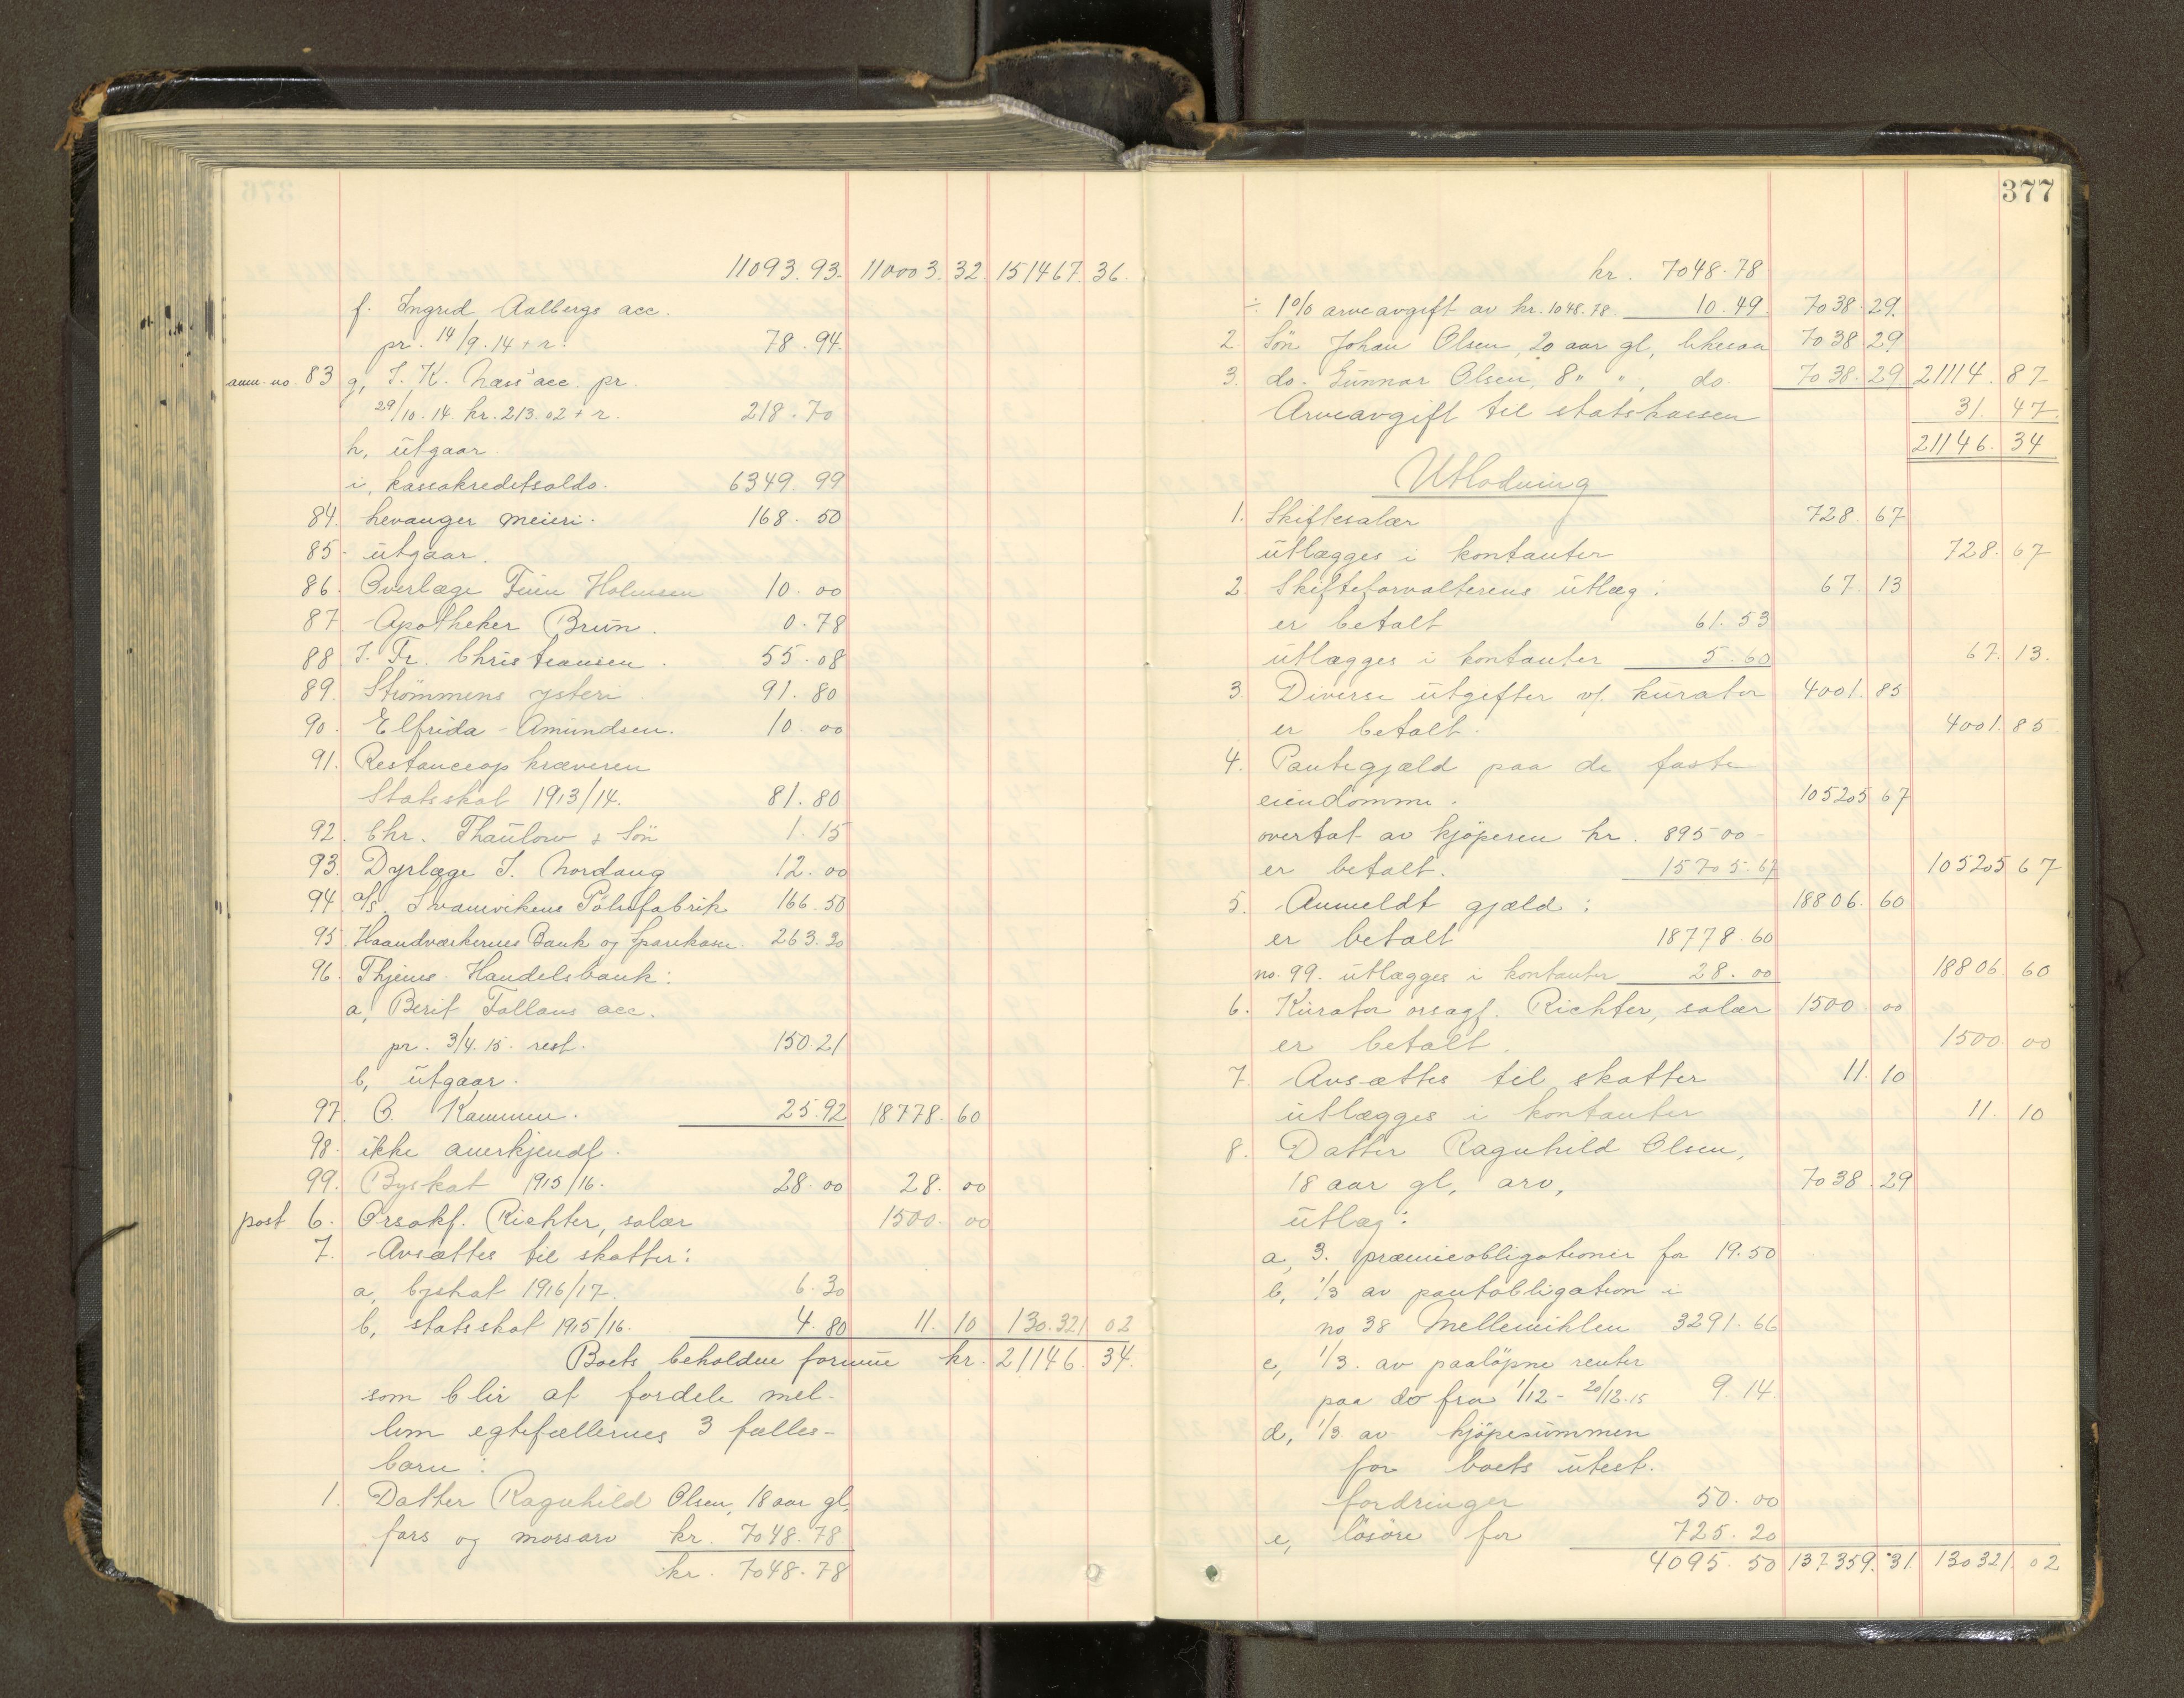 11093.93. 110003.32. 151467.36.
f. Ingrid Aalbergs acc.
pr. 14/9.14 + r. 78.94
anm. no. 83 g, J. K. Næss' acc. pr.
29/10.14. kr. 213.02 + r. 218.70
h, utgaar.
i, kassakreditsaldo. 6349.99
84. Levanger meieri. 168.50
85. utgaar.
86. Overlæge Finn Holmsen 10.00
87 Apotheker Brun. 0.78
88 J. Fr. Christiansen. 55.08
89. Strømmens ysteri. 91.80
90. Elfrida Amundsen. 10.00
91. Restanceopkræveren
Statsskat 1913/14. 81.80
92. Chr. Thaulow & Sön 1.15
93. Dyrlæge J. Nordaug 12.00
94. A/s. Svanevikens Pølsefabrik 166.50
95. Haandværkernes Bank og Sparekasse. 263.30
96. Thjems Handelsbank:
a, Berit Follans acc.
pr. 3/4.15. rest. 150.21
b, utgaar.
97. O. Kammen. 25.92 18778.60
98. ikke anerkjendt.
99. Byskat 1915/16. 28.00 28.00
post 6. Orsakf. Richter, salær 1500.00
7. Avsættes til skatter:
a, byskat 1916/17. 6.30
b, statsskat 1915/16. 4.80 11.10 130.321 02
Boets beholdne formue kr. 21146.34.
som blir at fordele mel-
lem egtefællernes 3 fælles-
barn:
1. Datter Ragnhild Olsen, 18 aar gl,
fars og morsarv kr. 7048.78
kr. 7048.78
377
kr. 7048.78
÷ 1% arveavgift av kr. 1048.78. 10.49. 7038.29.
2. Sön Johan Olsen, 20 aar gl, likesaa 7038 29
3. do. Gunnar Olsen, 8 " ", do. 7038.29 21114.87
Arveavgift til statskassen 31.47.
21146.34
Utlodning
1. Skiftesalær 728.67
utlægges i kontanter 728.67
2 Skifteforvalterens utlæg: 67 13
er betalt 61.53
utlægges i kontanter 5.60 67.13.
3. Diverse utgifter v/ kurator 4001.85
er betalt. 4001.85
4. Pantegjæld paa de faste
eiendomme. 105205 67
overtat av kjöperen kr. 89500-
er betalt. 15705.67 105205 67
5. Anmeldt gjæld: 18806.60
er betalt 18778.60
no. 99. utlægges i kontanter 28.00 18806.60
6. Kurator orsagf. Richter, salær 1500.00
er betalt. 1500.00
7. Avsættes til skatter 11.10
utlægges i kontanter 11.10
8. Datter Ragnhild Olsen,
18 aar gl, arv, 7038.29
utlæg:
a, 3. præmieobligationer for 19.50
b, 1/3 av pantobligation i
no 38 Mellemihlen 3291.66
c, 1/3. av paalöpne renter
paa do fra 1/12 - 20/12.15 9.14.
d, 1/3 av kjöpesummen
for boets utest.
fordringer 50.00
e, lösöre for 725.20
4095.50 137359.31. 130321.02